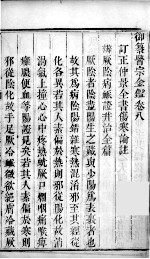 御纂醫宗金鑑卷八
訂正仲景全書傷寒論註
辨厥陰病脈證并治全篇
厥陰者陰盡陽生之藏與少陽為表裏者也
故其為病陰陽錯雜寒熱混淆邪至其經從
化各異若其人素偏於熱則邪從陽化故消
渴氣上撞心心中疼熱蚘厥口爛咽痛喉痺
癰膿便血等陽證見矣若其人素偏於寒則
邪從陰化故手足厥冷脈微欲絕膚冷藏厥